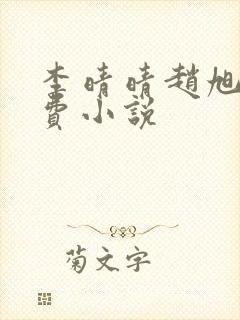 李晴晴趙旭
費小說
菊文字